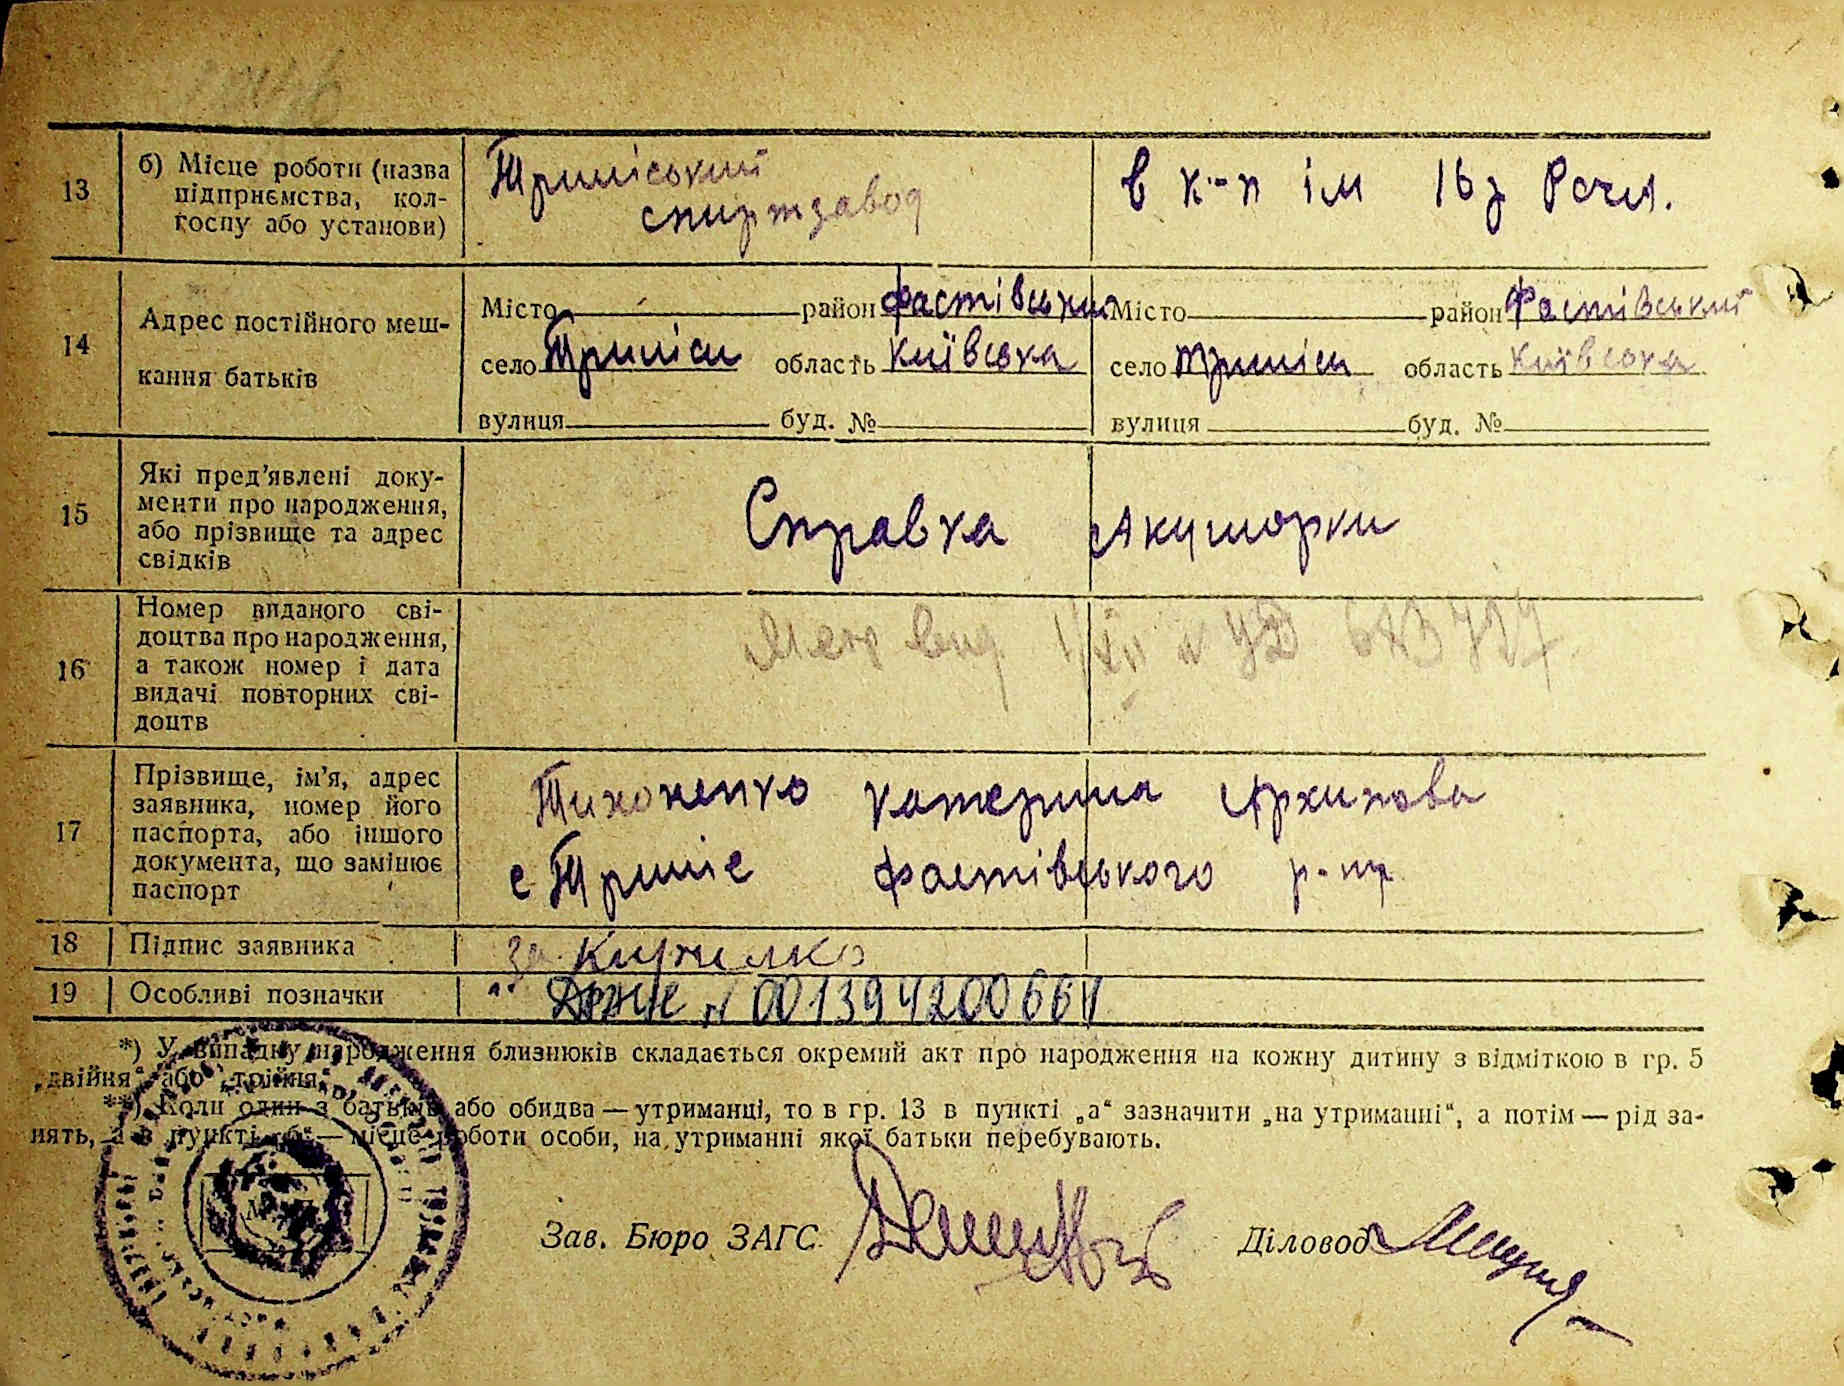 13
б) Місце роботи (назва
підприємства, кол-
госпу або установи)
Триліський
спиртзавод
в к-п ім 16 з Роčч.
14
Адрес постійного меш-
кання батьків
Місто район Фастівський
село Триліси область Київська
вулиця буд. №
Місто район Фастівський
село Триліси область Київська
вулиця буд. №
15
Які пред'явлені доку-
менти про народження,
або прізвище та адрес
свідків
Справка Акушорки
16
Номер виданого сві-
доцтва про народження,
а також номер і дата
видачі повторних сві-
доцтв
17
Прізвище, ім'я, адрес
заявника, номер його
паспорта, або іншого
документа, що замінює
паспорт
Тихоненко Катерина Архипова
с Триліс Фастівського р-ну
18
Підпис заявника
за
19
Особливі позначки
№ 001394200664
*) У випадку народження близнюків складається окремий акт про народження на кожну дитину з відміткою в гр. 5
„двійня" або „трійня".
**) Коли один з батьків або обидва — утриманці, то в гр. 13 в пункті „а" зазначити „на утриманні", а потім — рід за-
нять, а в пункті „б" — місце роботи особи, на утриманні якої батьки перебувають.
Зав. Бюро ЗАГС
Діловод